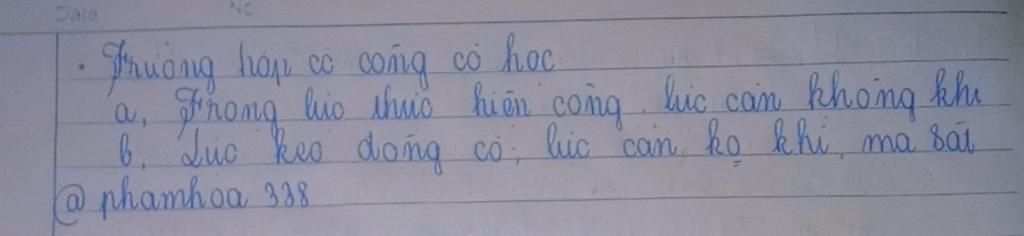 Date No
. Trường hợp có công cơ học
a, Trọng lực thực hiện công, lực cản không khí
b, Lực kéo động cơ, lực cản ko khí, ma sát
@phamhoa 338